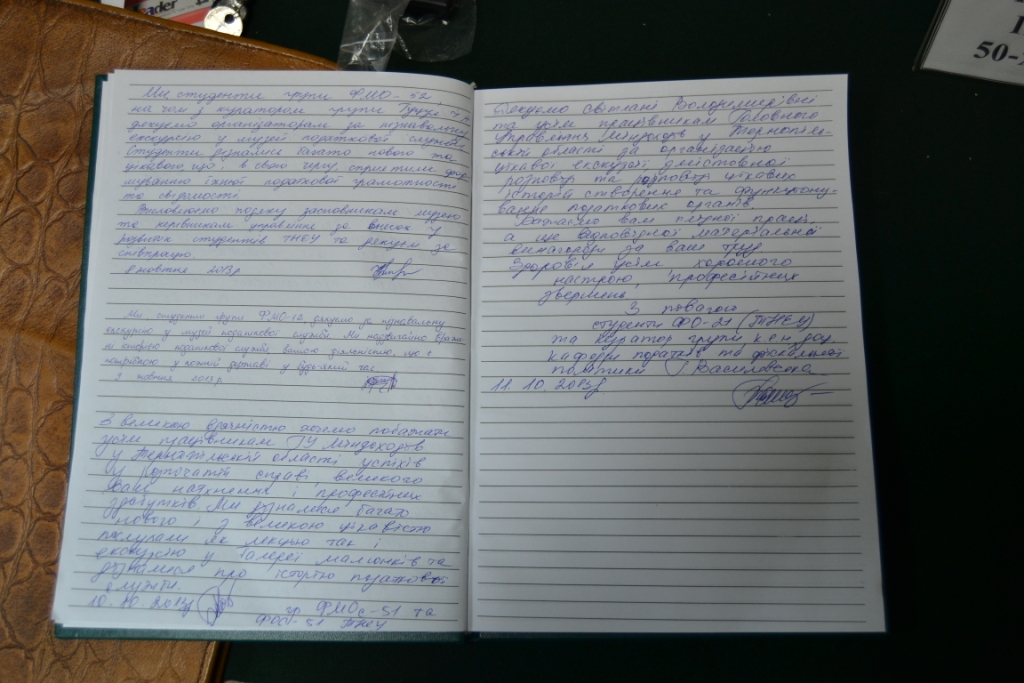 Ми студенти групи ФМО-52,
на чолі з куратором групи
дякуємо організаторам за пізнавальну
екскурсію в музеї податкової служби.
Студенти дізнались багато нового та
цікавого, що і в свою чергу сприятиме фор
муванню їхньої податкової грамотності
та свідомості.
Висловлюємо подяку засновникам музею
та керівникам управління за внесок у
розвиток студентів ТНЕУ та дякуєм за
співпрацю.
жовтня 2013р
Ми, студенти групи ФМО-12 дякуємо за пізнавальну
екскурсію у музей податкової служби. Ми надзвичайно враже-
ні податкової служби діяльністю, що є
потрібною у кожній державі у будь-який час.
9 жовтня 2013р.
З великою вдячністю хочемо побажати
усім працівникам ГУ Міндоходів
у Тернопільській області успіхів
у справі, великого
Вам натхнення і професійних
здобутків. Ми дізналися багато
нового і з великою цікавістю
послухали як лекцію так і
екскурсію у Галереї малюнків та
дізналися про історію податкової
служби.
10.10.2013р
гр ФМОс-51 та
ФОС-51 ТНЕУ
Дякуємо Світлані Володимирівні
та усім працівникам Головного
управління Міндоходів у Тернопіль-
ській області за організацію
цікавої екскурсії, змістовної
розповіді та розповіді цікавих
історій створення та функціону-
вання податкових органів.
Бажаємо вам плідної праці,
а ще відповідної матеріальної
винагороди за ваш труд
Здоров'я усім, хорошого
настрою, професійних
звершень
З повагою
студенти ФО-21 (ТНЕУ)
та куратор групи, к.е.н, доц.
кафедри податків та фіскальної
політики Василевська
11.10.2013р
50-